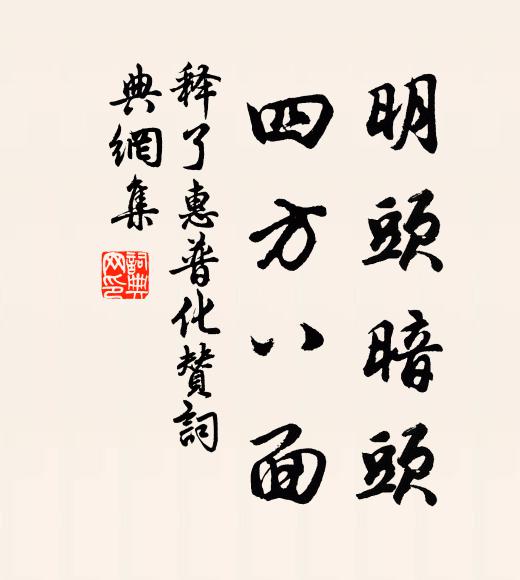 明頭暗頭
四方八面
释了惠普化贊詞
典網集
詞典
网印